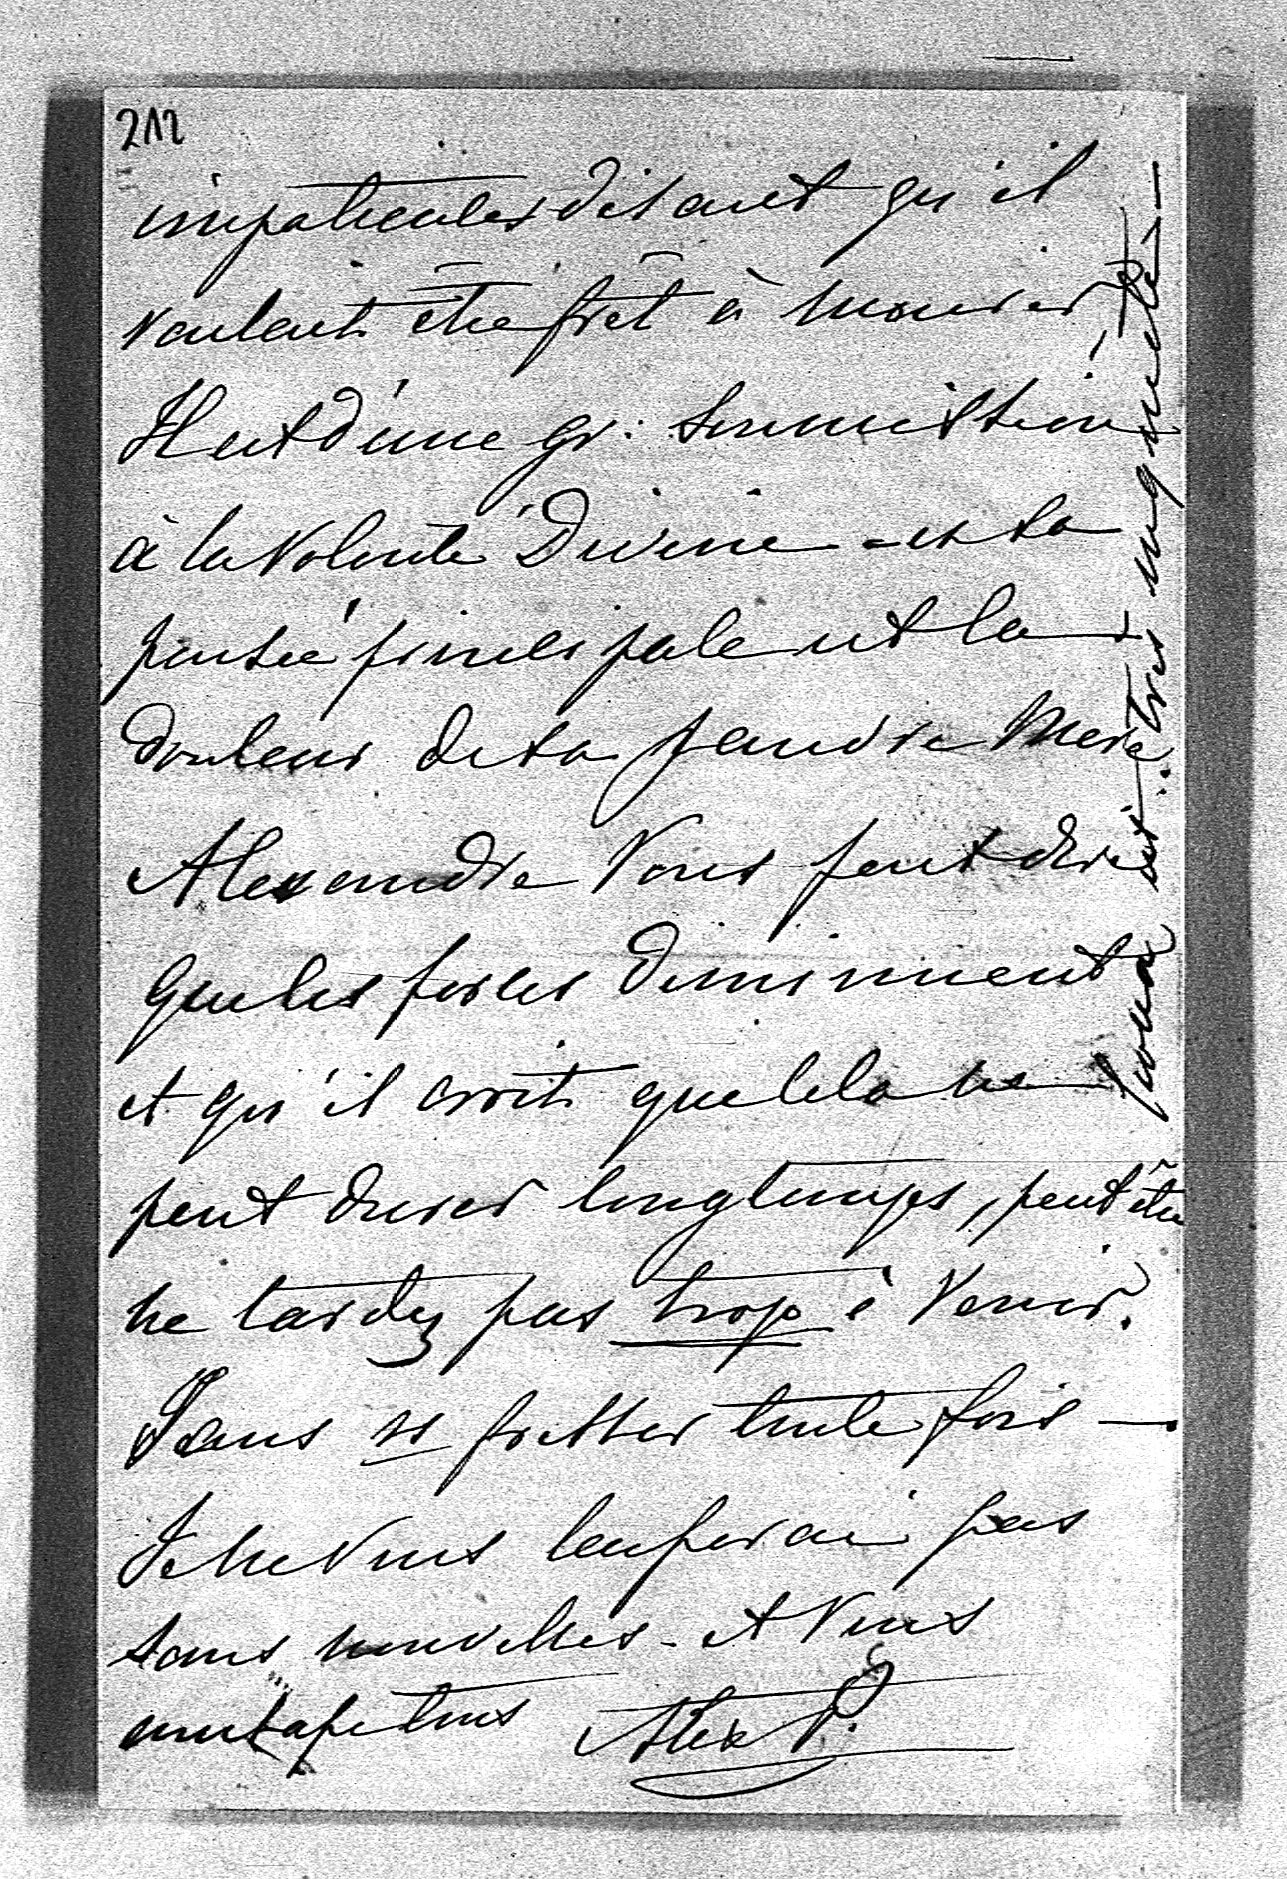 212
disant qu'il
voulait être prêt à mourir
Il est d'une gr: soumission
à la Volonté Divine - et sa
pensée principale est la
douleur de sa pauvre Mère
Alexandre Vous fait dire
que les forces diminuent
et qu'il croit que cela ne
peut durer longtemps, peut être
ne tardez pas trop à Venir.
Sans se presser toute fois —
Je ne Vous laisserai pas
sans nouvelles - et Vous
Alex P.
est très inquiète —